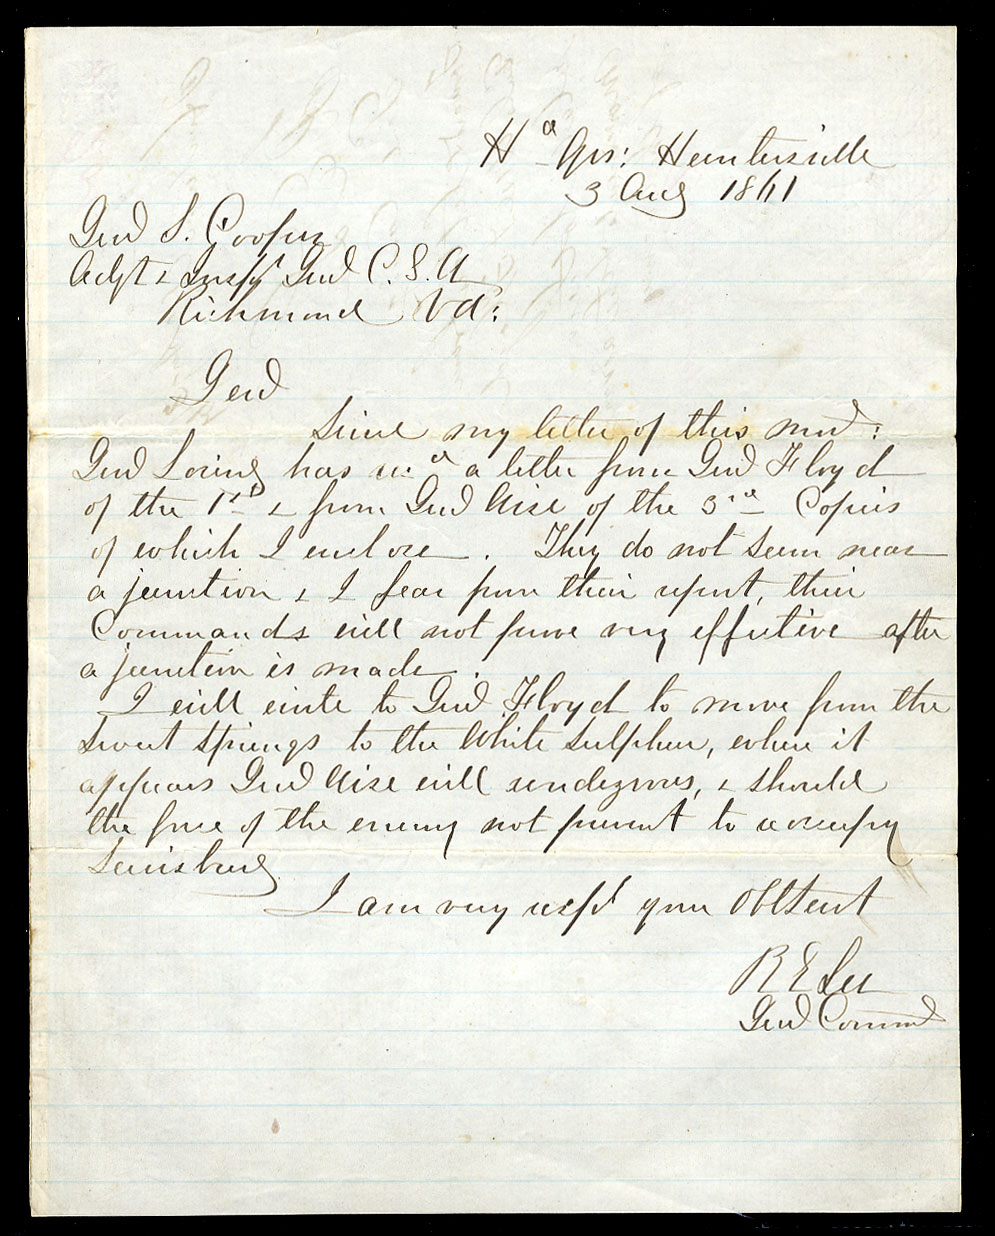 Hd Qrs: Huntersville
3 Aug 1861
Genl S. Cooper
Adjt & Inspr Genl C. S. A
Richmond Va:
Genl
Since my letter of this mod:
Genl Loring has recd a letter from Genl Floyd
of the 1st & from Genl Wise of the 3rd Copies
of which I enclose. They do not seem near
a junction & I fear from their report, their
Commands will not prove very effective after
a junction is made.
I will write to Genl Floyd to move from the
Sweet Springs to the White Sulphur, where it
appears Genl Wise will rendezvous, & should
the force of the enemy not prevent to reoccupy
Lewisburg
I am very respt your Obt Servt
R E Lee
Genl Commd